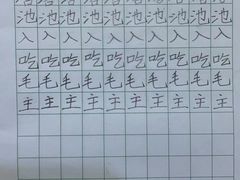 池池池池池池池池池池
入入入入入入入入入入
吃吃吃吃吃吃吃吃吃吃
毛毛毛毛毛毛毛毛毛毛
主主主主主主主主主主